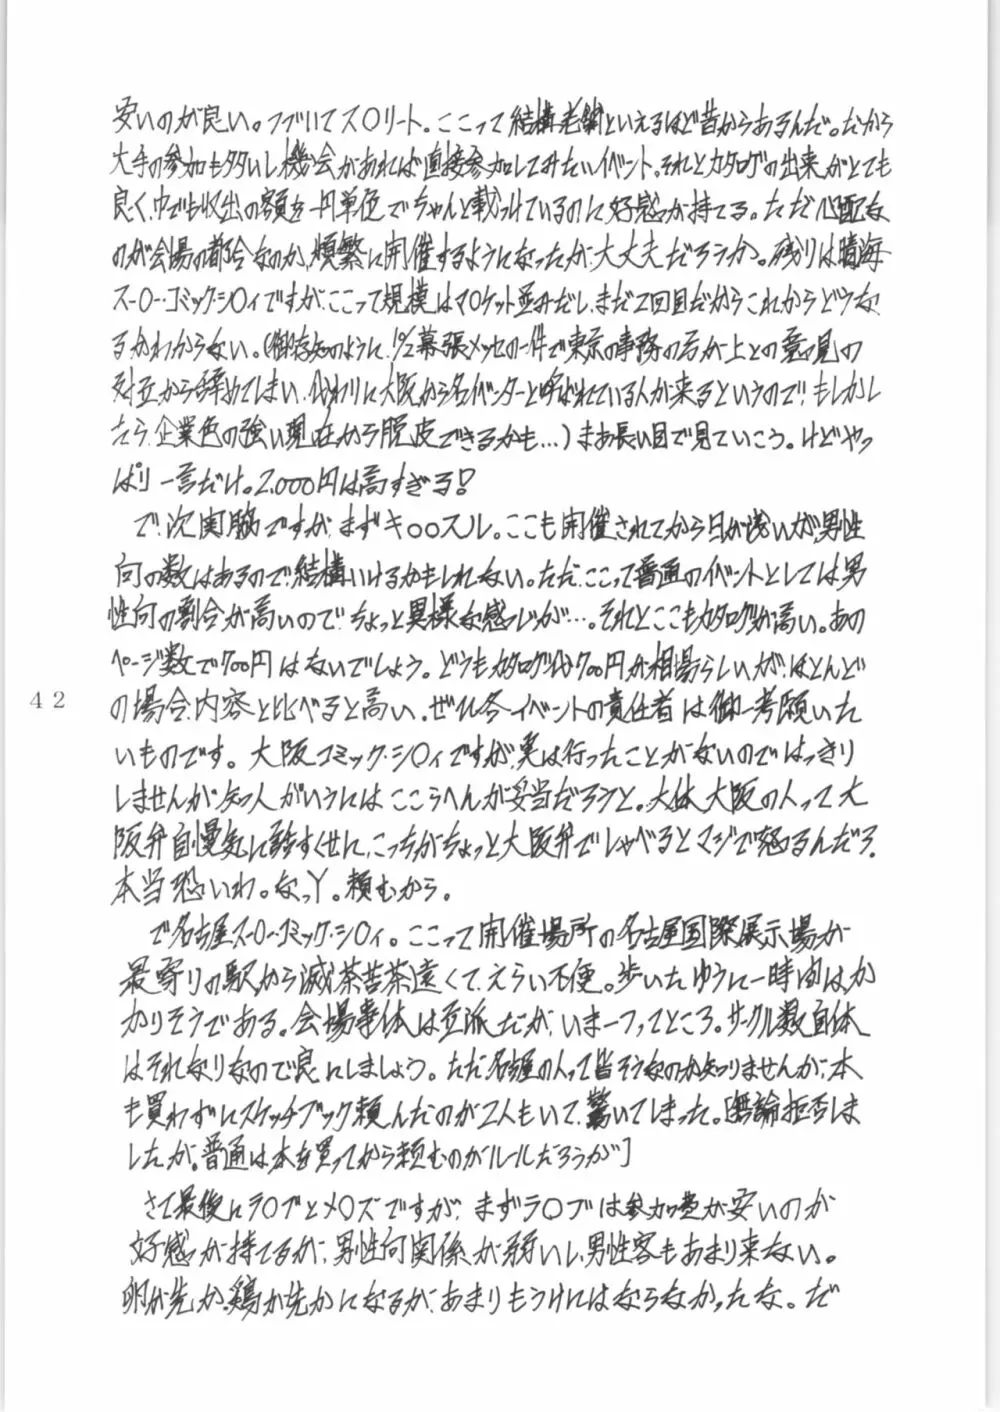 安いのが良い。つづいてス〇リート。ここって結構老舗といえるほど昔からあるんだ。だから
大手の参加も多いし機会があれば直接参加してみたいイベント。それとカタログの出来がとても
良く、中でも収出の額を一円単位でちゃんと載っけているのに好感が持てる。ただ心配な
のが会場の都合なのか、頻繁に開催するようになったが、大丈夫だろうか。残りは晴海
スー〇ー・コミック・シ〇ィですが、ここって規模はマ〇ケット並みだし、まだ2回目だからこれからどうな
るかわからない。(御存知のように、1%2幕張メッセの一件で東京の事務の方が上との意見の
対立から辞めてしまい、代わりに大阪から名イベンターと呼ばれている人が来るというので!もしかし
たら、企業色の強い現在から脱皮できるかも…)まあ長い目で見ていこう。けどやっ
ぱり一言だけ。2,000円は高すぎる!
で、次関脇ですが、まずキ〇〇スル。ここも開催されてから日が浅いが、男性
向の数はあるので、結構いけるかもしれない。ただ、ここって普通のイベントとしては男
性向の割合が高いので、ちょっと異様な感じが…。それとここもカタログが高い。あの
ページ数で700円はないでしょう。どうもカタログ代700円が相場らしいが、ほとんど
の場合、内容と比べると高い。ぜひ各イベントの責任者は御一考願いた
いものです。大阪コミック・シ〇ィですが、実は行ったことがないのではっきり
しませんが、知人がいうにはここらへんが妥当だろうと。大体大阪の人って大
阪弁自慢気に話すくせに、こっちがちょっと大阪弁でしゃべるとマジで怒るんだろ。
本当恐いわ。なっY。頼むから。
で名古屋スー〇ー・コミック・シ〇ィ。ここって開催場所の名古屋国際展示場が
最寄りの駅から滅茶苦茶遠くて、えらい不便。歩いたらゆうに一時間はか
かりそうである。会場事体は立派だが、いま一つってところ。サークル数自体
はそれなりなので良しにしましょう。ただ名古屋の人って皆そうなのか知りませんが、本
も買わずにスケッチブック頼んだのが2人もいて、驚いてしまった。[無論拒否しま
したが。普通は本を買ってから頼むのがルールだろうが]
さて最後にラ〇ブとメ〇ズですが、まずラ〇ブは参加費が安いのが
好感が持てるが、男性向関係が弱いし、男性客もあまり来ない。
卵が先か、鶏が先かになるが、あまりもうけにはならなかったな。だ
42